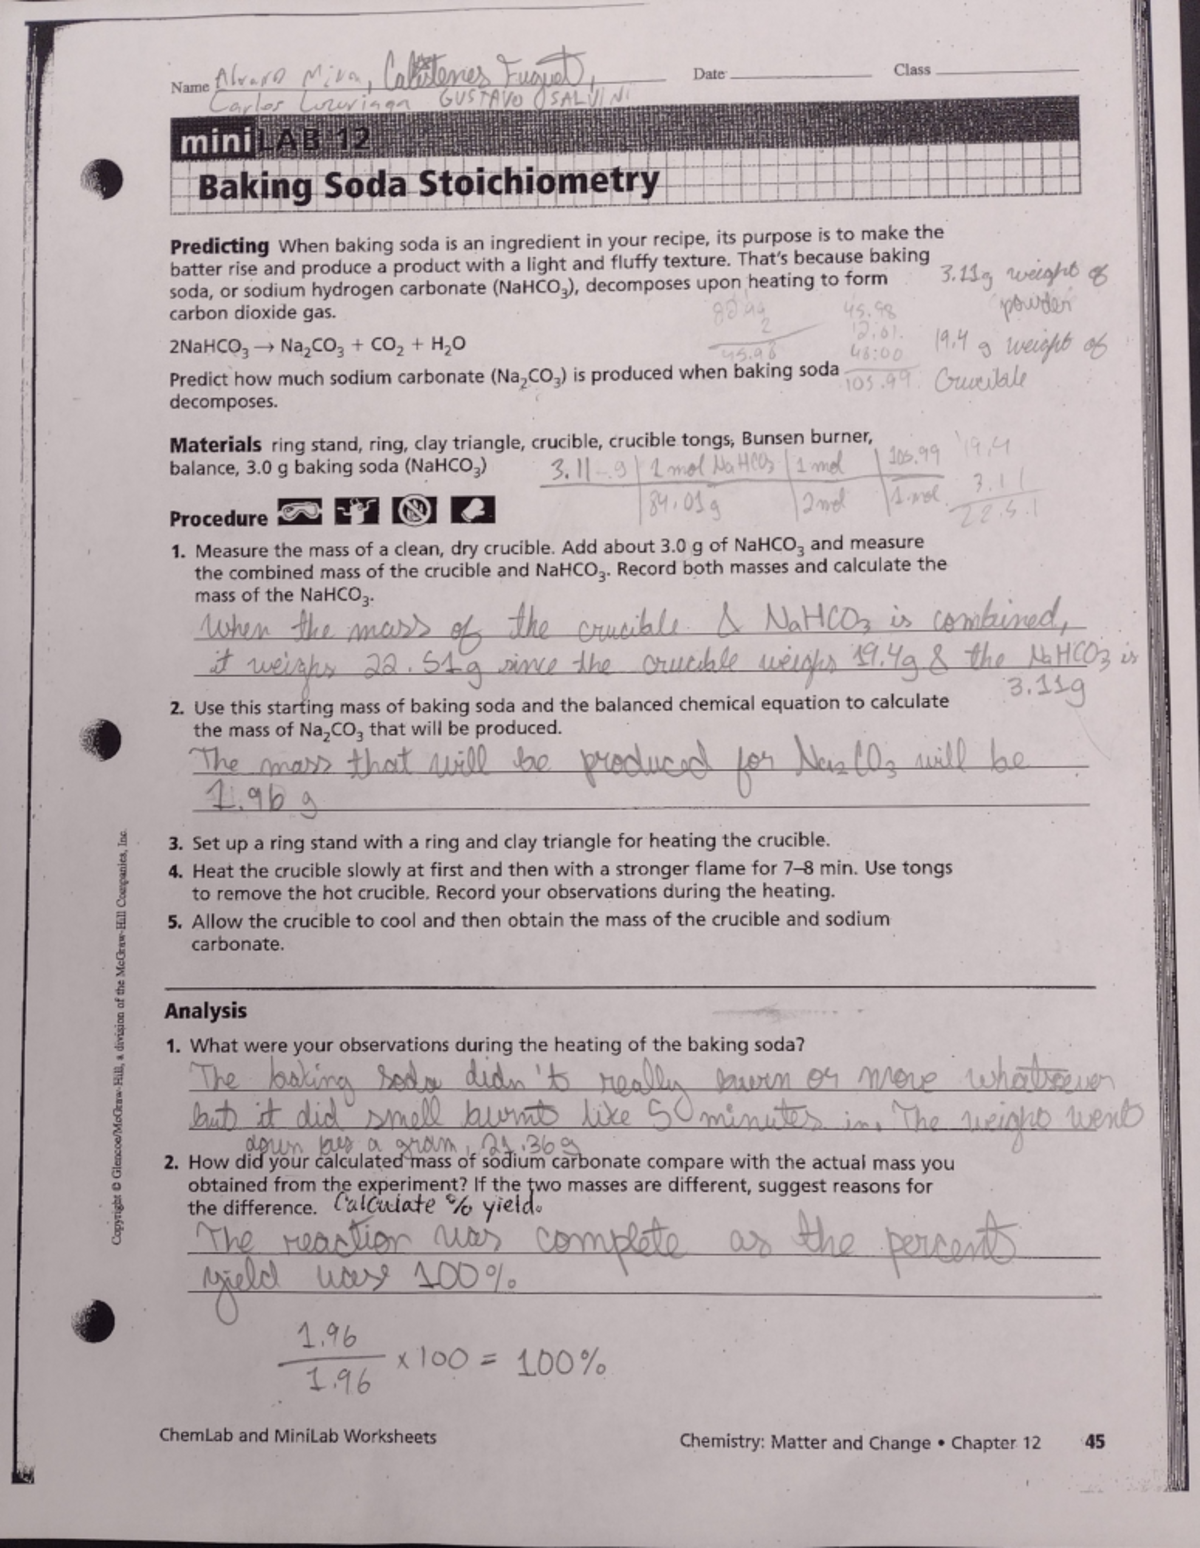 Name Alvaro Miva, Calistenes Fuguet,
Date
Class
Carlos GUSTAVO SALVINI
mini LAB 12
Baking Soda Stoichiometry
Predicting When baking soda is an ingredient in your recipe, its purpose is to make the
batter rise and produce a product with a light and fluffy texture. That's because baking
soda, or sodium hydrogen carbonate (NaHCO₃), decomposes upon heating to form
carbon dioxide gas.
3.11g weight of
powder
19.4 g weight of
Crucible
2
45.98
45.98
12.01
48:00
105.99
2NaHCO₃ → Na₂CO₃ + CO₂ + H₂O
Predict how much sodium carbonate (Na₂CO₃) is produced when baking soda
decomposes.
Materials ring stand, ring, clay triangle, crucible, crucible tongs, Bunsen burner,
balance, 3.0 g baking soda (NaHCO₃)
3.11 g | 1 mol NaHCO₃ | 1 mol | 105.99
| 84.01g | 2mol | 1 mol
19.4
3.11
22.51
Procedure
1. Measure the mass of a clean, dry crucible. Add about 3.0 g of NaHCO₃ and measure
the combined mass of the crucible and NaHCO₃. Record both masses and calculate the
mass of the NaHCO₃.
When the mass of the crucible & NaHCO₃ is combined,
it weighs 22.51g since the crucible weighs 19.4g & the NaHCO₃ is
3.11g
2. Use this starting mass of baking soda and the balanced chemical equation to calculate
the mass of Na₂CO₃ that will be produced.
The mass that will be produced for Na₂CO₃ will be
1.96 g
3. Set up a ring stand with a ring and clay triangle for heating the crucible.
4. Heat the crucible slowly at first and then with a stronger flame for 7–8 min. Use tongs
to remove the hot crucible. Record your observations during the heating.
5. Allow the crucible to cool and then obtain the mass of the crucible and sodium
carbonate.
Analysis
1. What were your observations during the heating of the baking soda?
The baking soda didn't really burn or move whatsoever
but it did smell burnt like 50 minutes in. The weight went
down by a gram, 21.36g
2. How did your calculated mass of sodium carbonate compare with the actual mass you
obtained from the experiment? If the two masses are different, suggest reasons for
the difference. Calculate % yield.
The reaction was complete as the percent
yield was 100%
1.96
1.96
x 100 = 100%
Copyright © Glencoe/McGraw-Hill, a division of the McGraw-Hill Companies, Inc.
ChemLab and MiniLab Worksheets
Chemistry: Matter and Change • Chapter 12 45